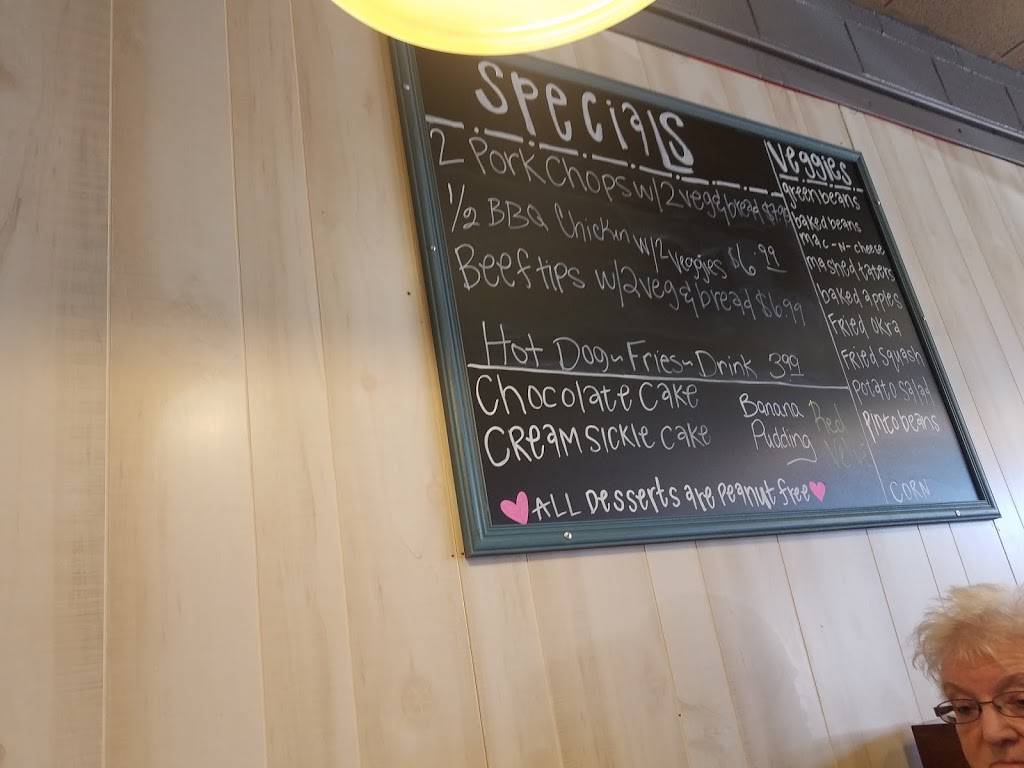 Specials
2 Pork Chops w/2 veg & bread
1/2 BBQ Chickin w/2 veggies $6.99
Beef tips w/2 veg & bread $6.99
Hot Dog~Fries~Drink 3.99
Chocolate Cake
CReamsickle Cake
Banana
Pudding
Red
Velvet
ALL Desserts are peanut free
Veggies
greenbeans
baked beans
mac-n-cheese
mashed taters
baked apples
Fried Okra
Fried Squash
potato salad
Pinto beans
CORN